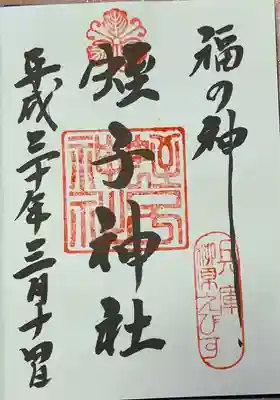 福の神
兵庫
柳原えびす
蛭子神社
蛭子
神社
平成三十年三月十四日